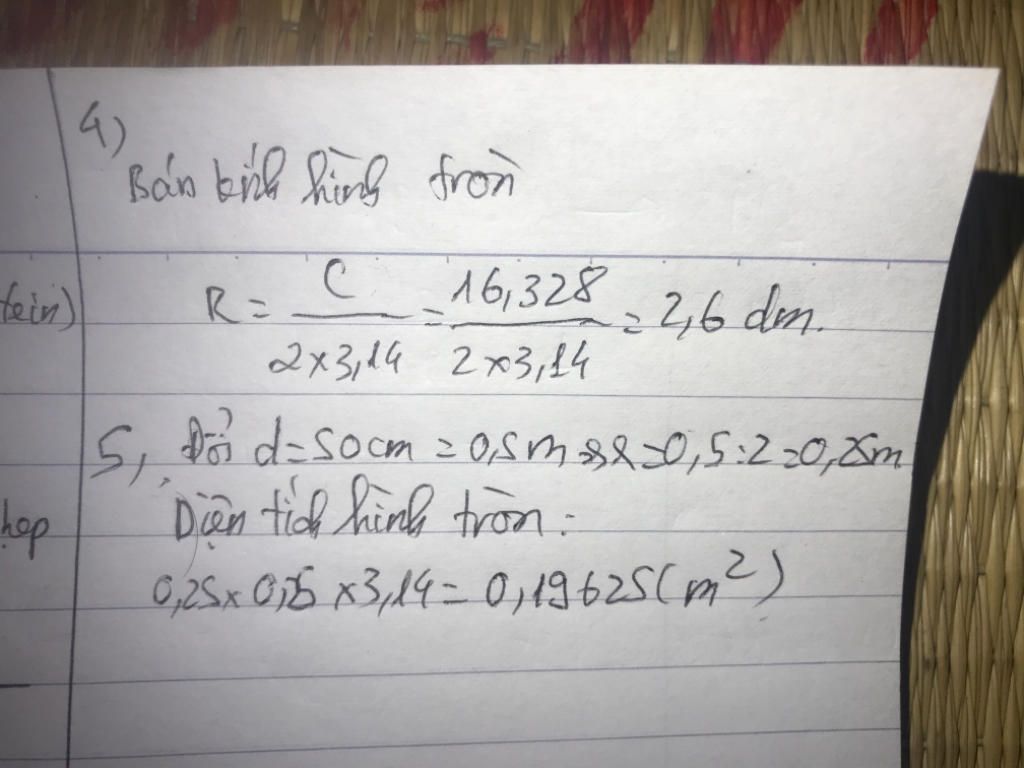 4)
Bán kính hình tròn
tein) R = C / 2 x 3,14 = 16,328 / 2 x 3,14 = 2,6 dm.
5, Đổi d = 50cm = 0,5m R = 0,5 : 2 = 0,25m
hẹp Diện tích hình tròn:
0,25 x 0,25 x 3,14 = 0,19625 (m²)